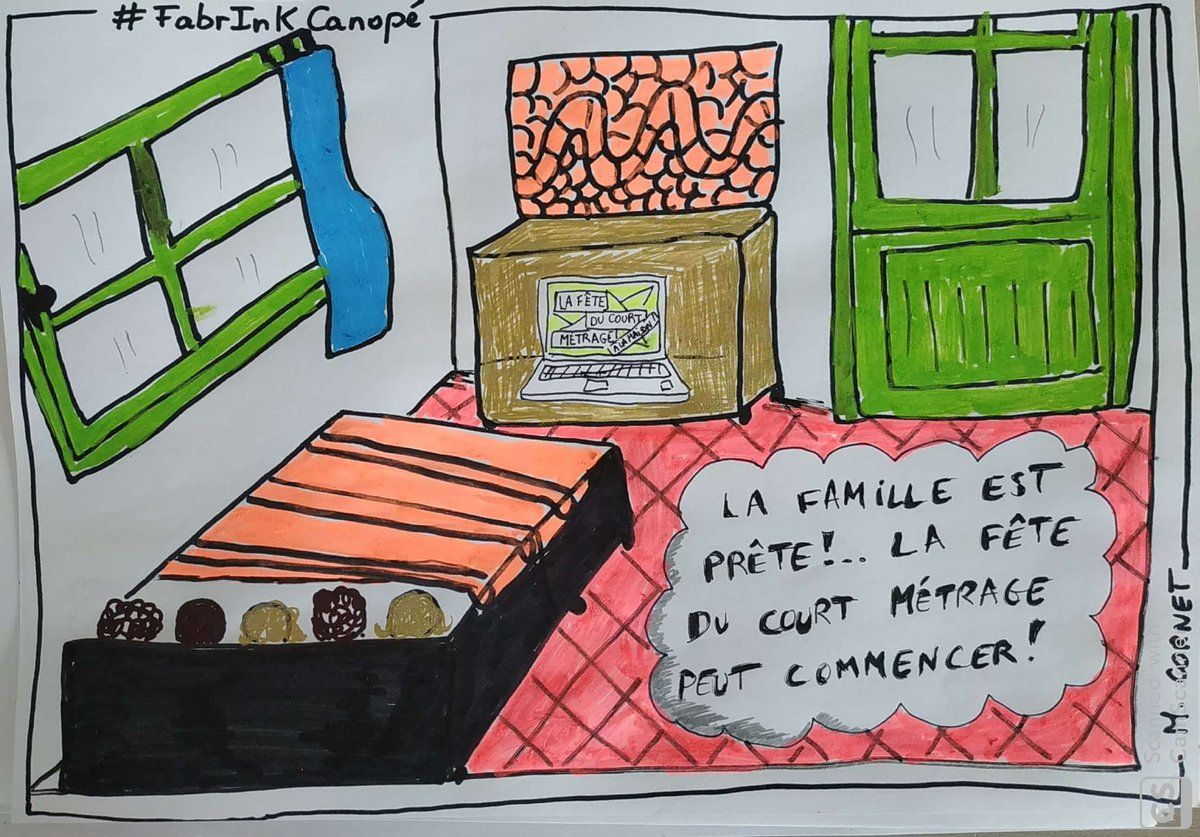 #FabrInK Canopé
LA FÊTE
DU COURT
METRAGE!
À LA MAISON!
LA FAMILLE EST
PRÊTE!.. LA FÊTE
DU COURT MÉTRAGE
PEUT COMMENCER!
M. CORNET
CS